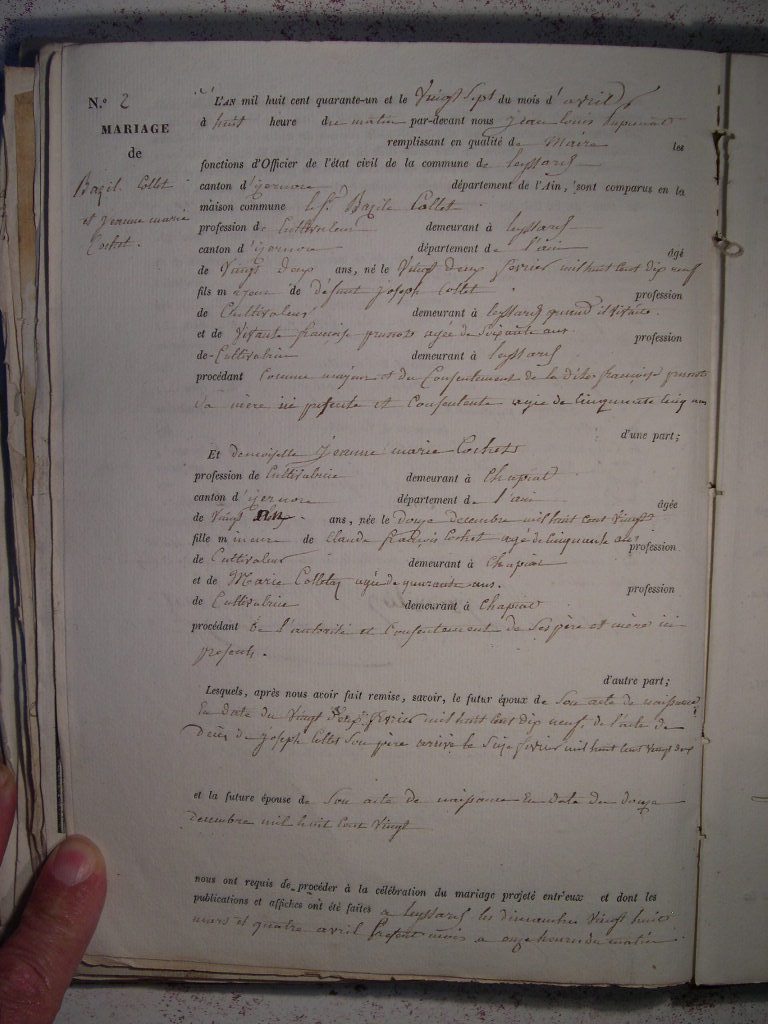 N.º 2
MARIAGE
de
Bazil. Collet
et jeanne marie
Cochet.
L'AN mil huit cent quarante-un et le Vingt Sept du mois d'avril
à huit heure du matin par-devant nous jean Louis
remplissant en qualité de Maire les
fonctions d'Officier de l'état civil de la commune de leyssard
canton d'izernore département de l'Ain, sont comparus en la
maison commune le Sr. Bazile Collet
profession de Cultivateur demeurant à leyssard
canton d'izernore département de l'ain âgé
de Vingt deux ans, né le Vingt deux fevrier mil huit cent dix neuf
fils majeur de défunt joseph Collet profession
de Cultivateur demeurant à leyssard quand il vivait.
et de Vivante françoise agée de soixante ans profession
de Cultivatrice demeurant à leyssard
procédant Comme majeur et du Consentement de la dite françoise
Sa mère ici présente et Consentente agée de Cinquante Cinq ans
d'une part;
Et demoiselle jeanne marie Cochet
profession de Cultivatrice demeurant à Chapiat
canton d'izernore département de l'ain âgée
de Vingt ans, née le douze decembre mil huit cent Vingt
fille mineure de Claude françois Cochet agé de Cinquante ans profession
de Cultivateur demeurant à Chapiat
et de Marie Collet agée de quarante ans. profession
de Cultivatrice demeurant à Chapiat
procédant de l'autorité et Consentement de Ses père et mère ici
présents.
d'autre part;
Lesquels, après nous avoir fait remise, savoir, le futur époux de Son acte de naissance
En date du Vingt deux fevrier mil huit cent dix neuf, de l'acte de
Décès de joseph Collet Son père arrivé le Seize fevrier mil huit cent vingt deux
et la future épouse de Son acte de naissance En date du douze
decembre mil huit cent Vingt
nous ont requis de procéder à la célébration du mariage projeté entr'eux et dont les
publications et affiches ont été faites a leyssard les dimanches Vingt huit
mars et quatre avril présent mois a onze heures du matin